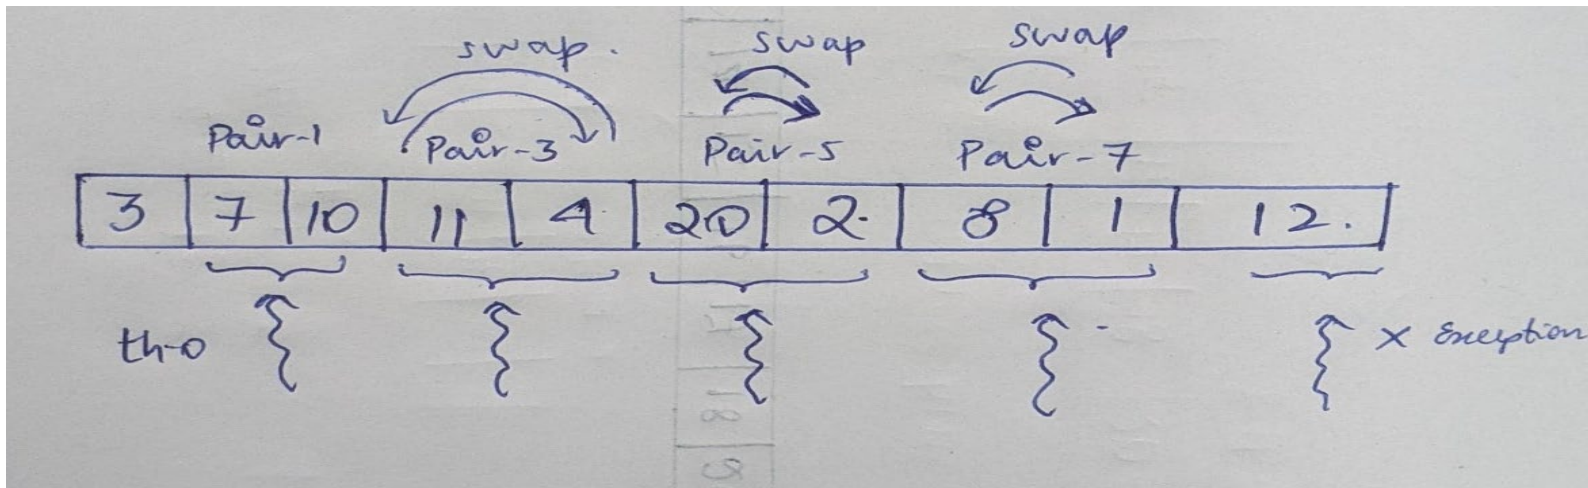 swap. swap swap
Pair-1 Pair-3 Pair-5 Pair-7
3 7 10 11 4 20 2 8 1 12.
th-0 x Exception